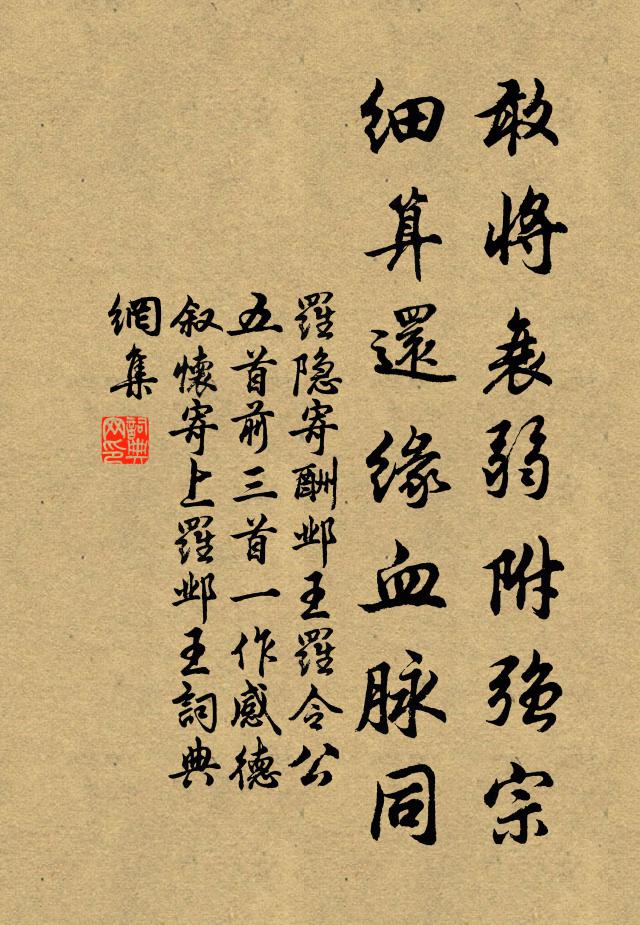 敢將衰弱附強宗
細算還緣血脉同
羅隐寄酬邺王羅令公
五首前三首一作感德
叙懷寄上羅邺王詞典
網集
詞典
网印